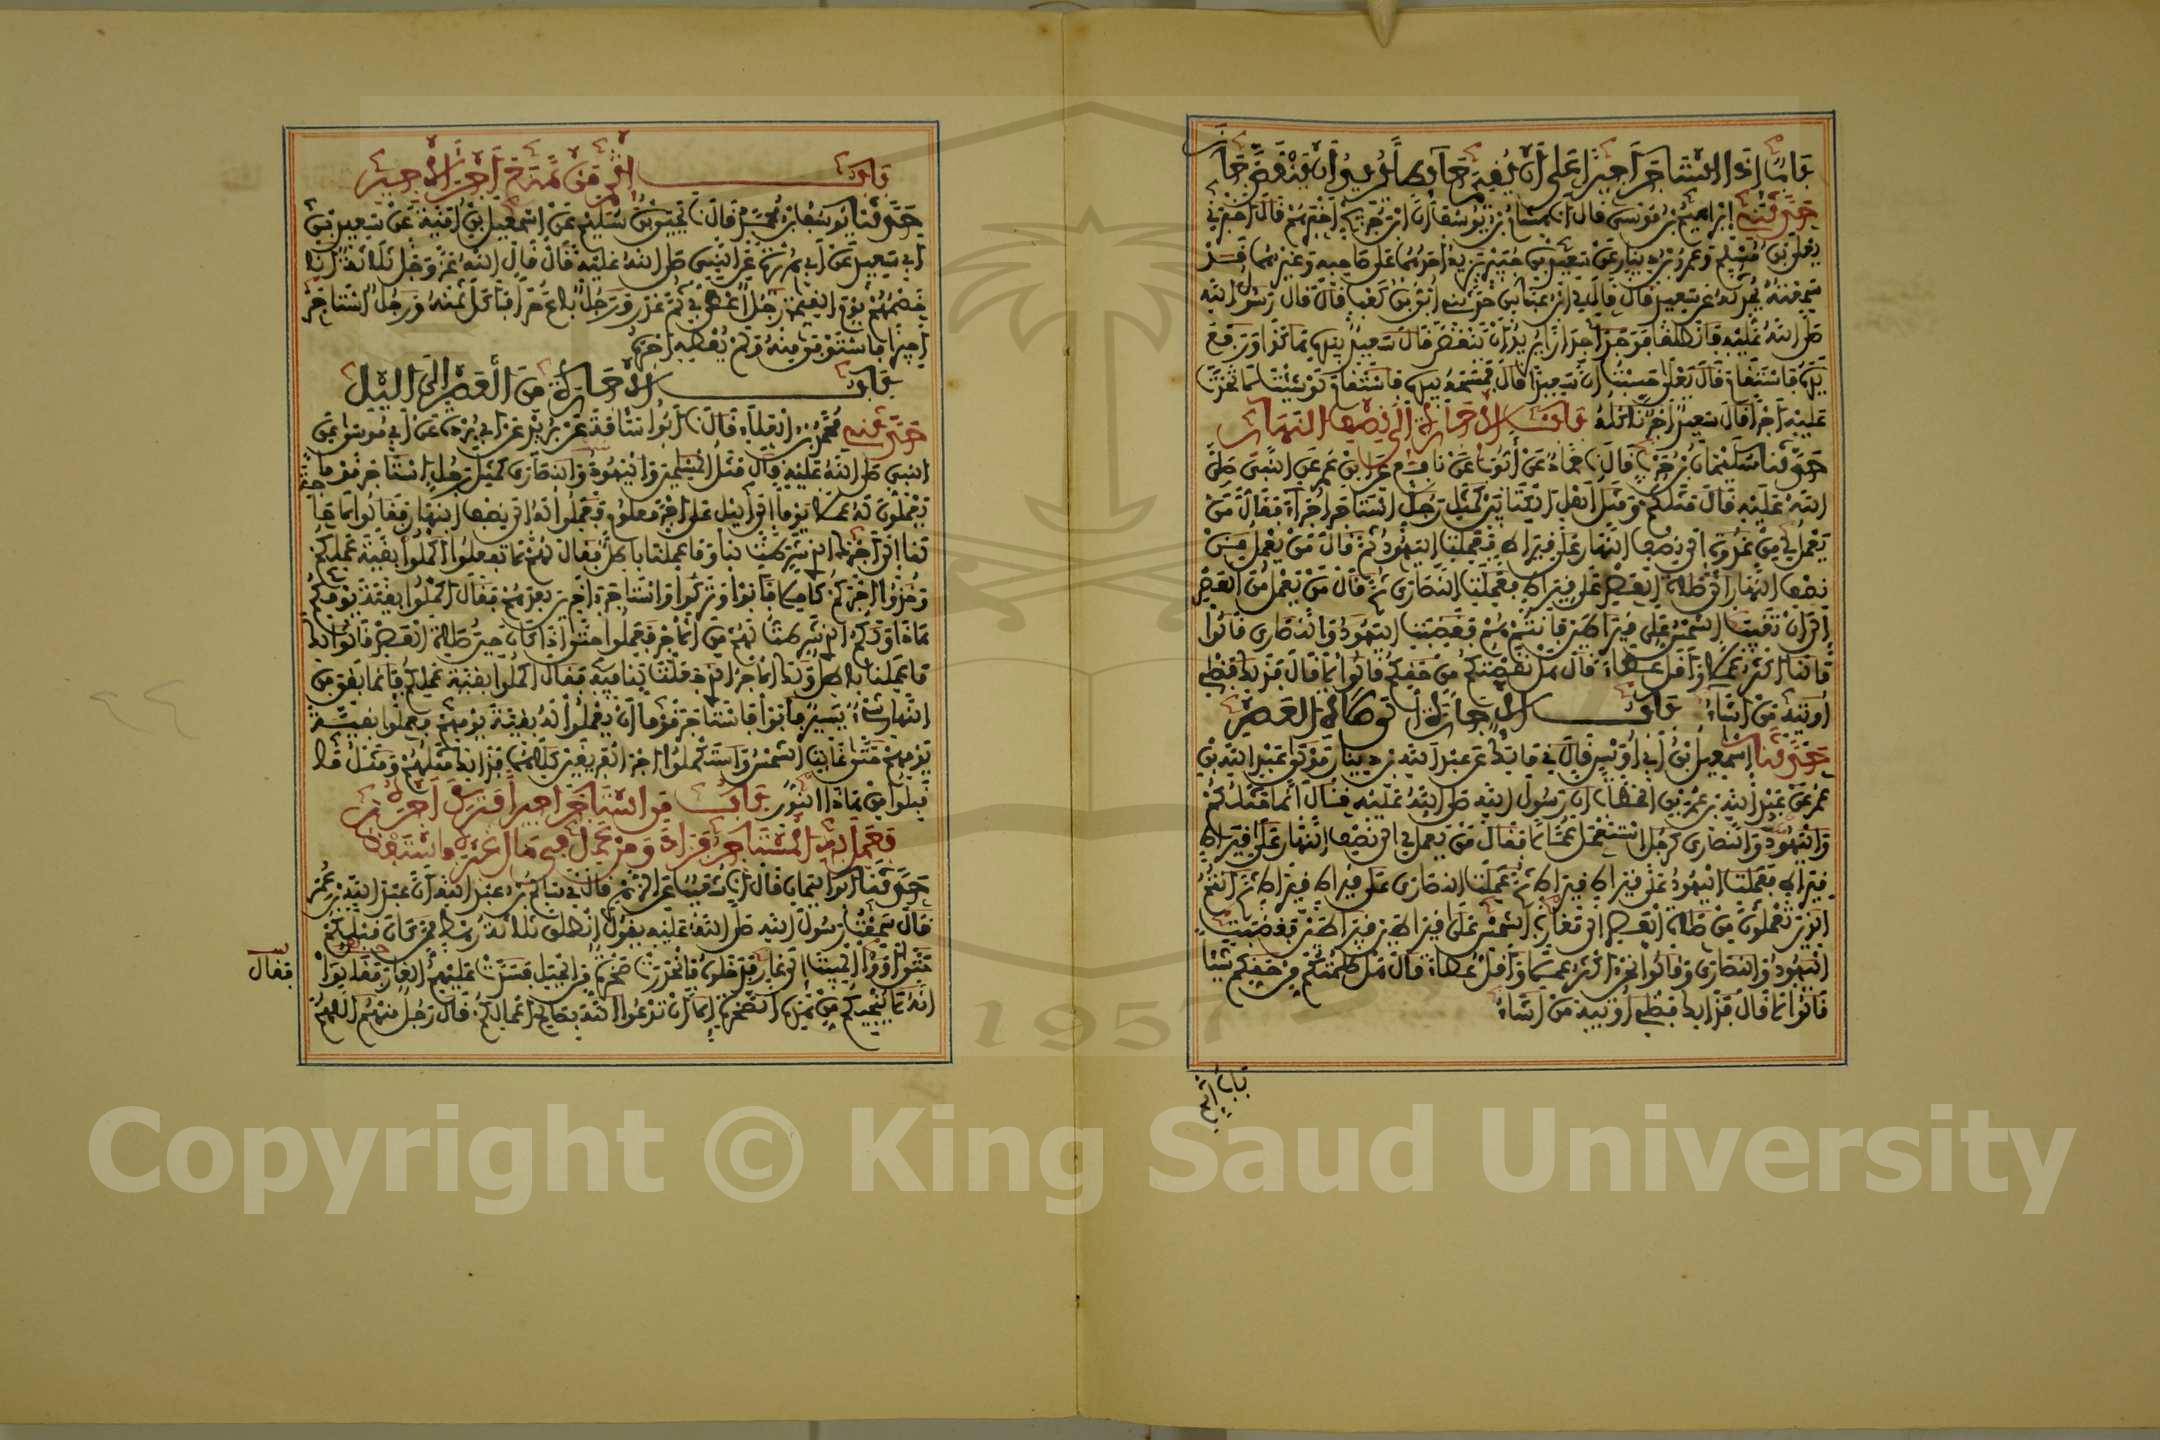 باب اذا استاجر اجيرا على ان يقيم حايطا يريد ان ينقض جاز
حدثني ابراهيم بن موسى قال انا هشام بن يوسف ان ابن جريج اخبرهم قال اخبرني
يعلى بن مسلم وعمرو بن دينار عن سعيد بن جبير يزيد احدهما على صاحبه وغيرهما قد
سمعته يحدثه عن سعيد قال قال لي ابن عباس حدثني ابي بن كعب قال قال رسول الله
صلى الله عليه فانطلقا فوجدا جدارا يريد ان ينقض قال سعيد بيده هكذا ورفع
يديه فاستقام قال يعلى حسبت ان سعيدا قال فمسحه بيده فاستقام لو شئت لتخذت
عليه اجرا قال سعيد اجر ناكله باب الاجارة الى نصف النهار
حدثنا سليمان بن حرب قال نا حماد عن ايوب عن نافع عن ابن عمر عن النبي صلى
الله عليه قال مثلكم ومثل اهل الكتابين كمثل رجل استاجر اجراء فقال من
يعمل لي من غدوة الى نصف النهار على قيراط فعملت اليهود ثم قال من يعمل من
نصف النهار الى صلاة العصر على قيراط فعملت النصارى ثم قال من يعمل من العصر
الى ان تغيب الشمس على قيراطين فانتم هم فغضبت اليهود والنصارى قالوا
مالنا اكثر عملا واقل عطاء قال هل نقصتكم من حقكم قالوا لا قال فذلك فضلي
اوتيه من اشاء باب الاجارة الى صلاة العصر
حدثنا اسمعيل بن ابي اويس قال ني مالك عن عبد الله بن دينار مولى عبد الله بن
عمر عن عبد الله بن عمر بن الخطاب ان رسول الله صلى الله عليه قال انما مثلكم
واليهود والنصارى كرجل استعمل عمالا فقال من يعمل لي الى نصف النهار على قيراط
قيراط فعملت اليهود على قيراط قيراط ثم عملت النصارى على قيراط قيراط ثم انتم
الذين تعملون من صلاة العصر الى مغارب الشمس على قيراطين قيراطين فغضبت
اليهود والنصارى وقالوا نحن اكثر عملا واقل عطاء قال هل ظلمتكم من حقكم شيئا
قالوا لا قال فذلك فضلي اوتيه من اشاء
باب اثم
باب اثم من منع اجر الاجير
حدثنا يوسف بن محمد قال نا يحيى بن سليم عن اسمعيل بن امية عن سعيد بن
ابي سعيد عن ابي هريرة عن النبي صلى الله عليه قال قال الله عز وجل ثلاثة انا
خصمهم يوم القيمة رجل اعطى بي ثم غدر ورجل باع حرا فاكل ثمنه ورجل استاجر
اجيرا فاستوفى منه ولم يعطه اجره
باب الاجارة من العصر الى اليل
حدثني محمد بن العلاء قال نا ابو اسامة عن بريد عن ابي بردة عن ابي موسى عن
النبي صلى الله عليه قال مثل المسلمين واليهود والنصارى كمثل رجل استاجر قوما
يعملون له عملا يوما الى اليل على اجر معلوم فعملوا له الى نصف النهار فقالوا لا حاجة
لنا الى اجرك الذي شرطت لنا وما عملنا باطل فقال لهم لا تفعلوا اكملوا بقية عملكم
وخذوا اجركم كاملا فابوا وتركوا واستاجر اخرين بعدهم فقال اكملوا بقية يومكم
هذا ولكم الذي شرطت لهم من الاجر فعملوا حتى اذا كان حين صلاة العصر قالوا لك
ما عملنا باطل ولك الاجر الذي جعلت لنا فيه فقال اكملوا بقية عملكم فانما بقي من
النهار شيء يسير فابوا فاستاجر قوما ان يعملوا له بقية يومهم فعملوا بقية
يومهم حتى غابت الشمس واستكملوا اجر الفريقين كليهما فذلك مثلهم ومثل ما
قبلوا من هذا النور باب من استاجر اجيرا فترك اجره
فعمل فيه المستاجر فزاد ومن عمل في مال غيره فاستفضل
حدثنا ابو اليمان قال انا شعيب عن الزهري قال ني سالم بن عبد الله ان عبد الله بن عمر
قال سمعت رسول الله صلى الله عليه يقول انطلق ثلاثة رهط ممن كان قبلكم
حتى اووا المبيت الى غار فدخلوه فانحدرت صخرة من الجبل فسدت عليهم الغار فقالوا
انه لا ينجيكم من هذه الصخرة الا ان تدعوا الله بصالح اعمالكم قال رجل منهم اللهم
فقال